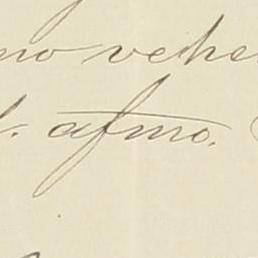 no vehe
afmo.